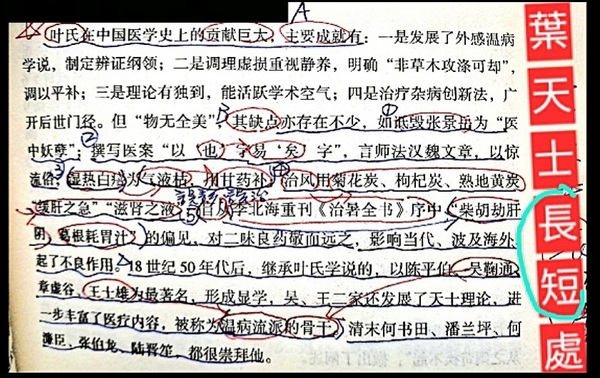 A
叶氏在中国医学史上的贡献巨大，主要成就有：一是发展了外感温病
学说，制定辨证纲领；二是调理虚损重视静养，明确“非草木攻涤可却”，
调以平补；三是理论有独到，能活跃学术空气；四是治疗杂病创新法，广
开后世门径。但“物无全美”，其缺点亦存在不少，如诋毁张景岳为“医
中妖孽”；撰写医案“以‘也’字易‘矣’字”，言师法汉魏文章，以惊
流俗；湿热白㾦为气液枯，用甘药补；治风用菊花炭、枸杞炭、熟地黄炭
“缓肝之急”“滋肾之液”；自从李北海重刊《治暑全书》序中“柴胡劫肝
阴，葛根耗胃汁”的偏见，对二味良药敬而远之，影响当代、波及海外，
起了不良作用。18世纪50年代后，继承叶氏学说的，以陈平伯、吴鞠通、
章虚谷、王士雄为最著名，形成显学，吴、王二家还发展了天士理论，进
一步丰富了医疗内容，被称为温病流派的骨干。清末何书田、潘兰坪、何
廉臣、张伯龙、陆晋笙，都很崇拜他。
葉天士長短處